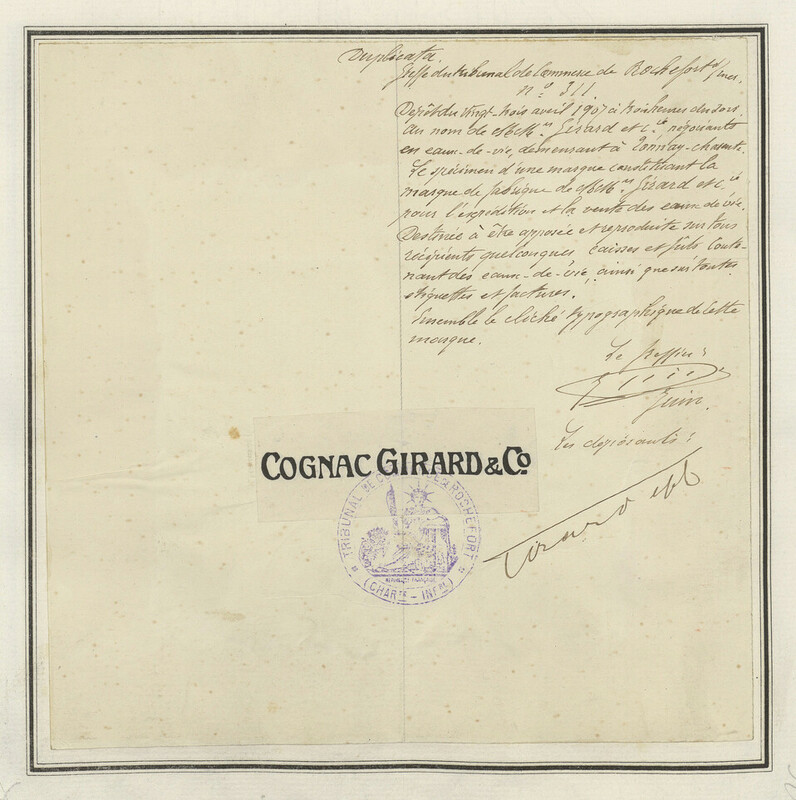 Duplicata.
Greffe du tribunal de Commerce de Rochefort s/ mer.
nº 311.
Dépôt du vingt-trois avril 1907 à trois heures du soir
au nom de MM.rs Girard et Cie, négociants
en eaux-de-vie, demeurant à Tonnay-Charente.
Le spécimen d'une marque constituant la
marque de fabrique de MM.rs Girard et Cie
pour l'expédition et la vente des eaux-de-vie.
Destinée à être apposée et reproduite sur tous
récipients quelconques, caisses et fûts conte-
nant des eaux-de-vie, ainsi que sur toutes
étiquettes et factures.
Ensemble le cliché typographique de cette
marque.
Le Greffier:
Les déposants:
Girard & Co
COGNAC GIRARD & Co
TRIBUNAL DE COMMERCE DE ROCHEFORT
REPUBLIQUE FRANÇAISE
(CHARTE - INFRE)